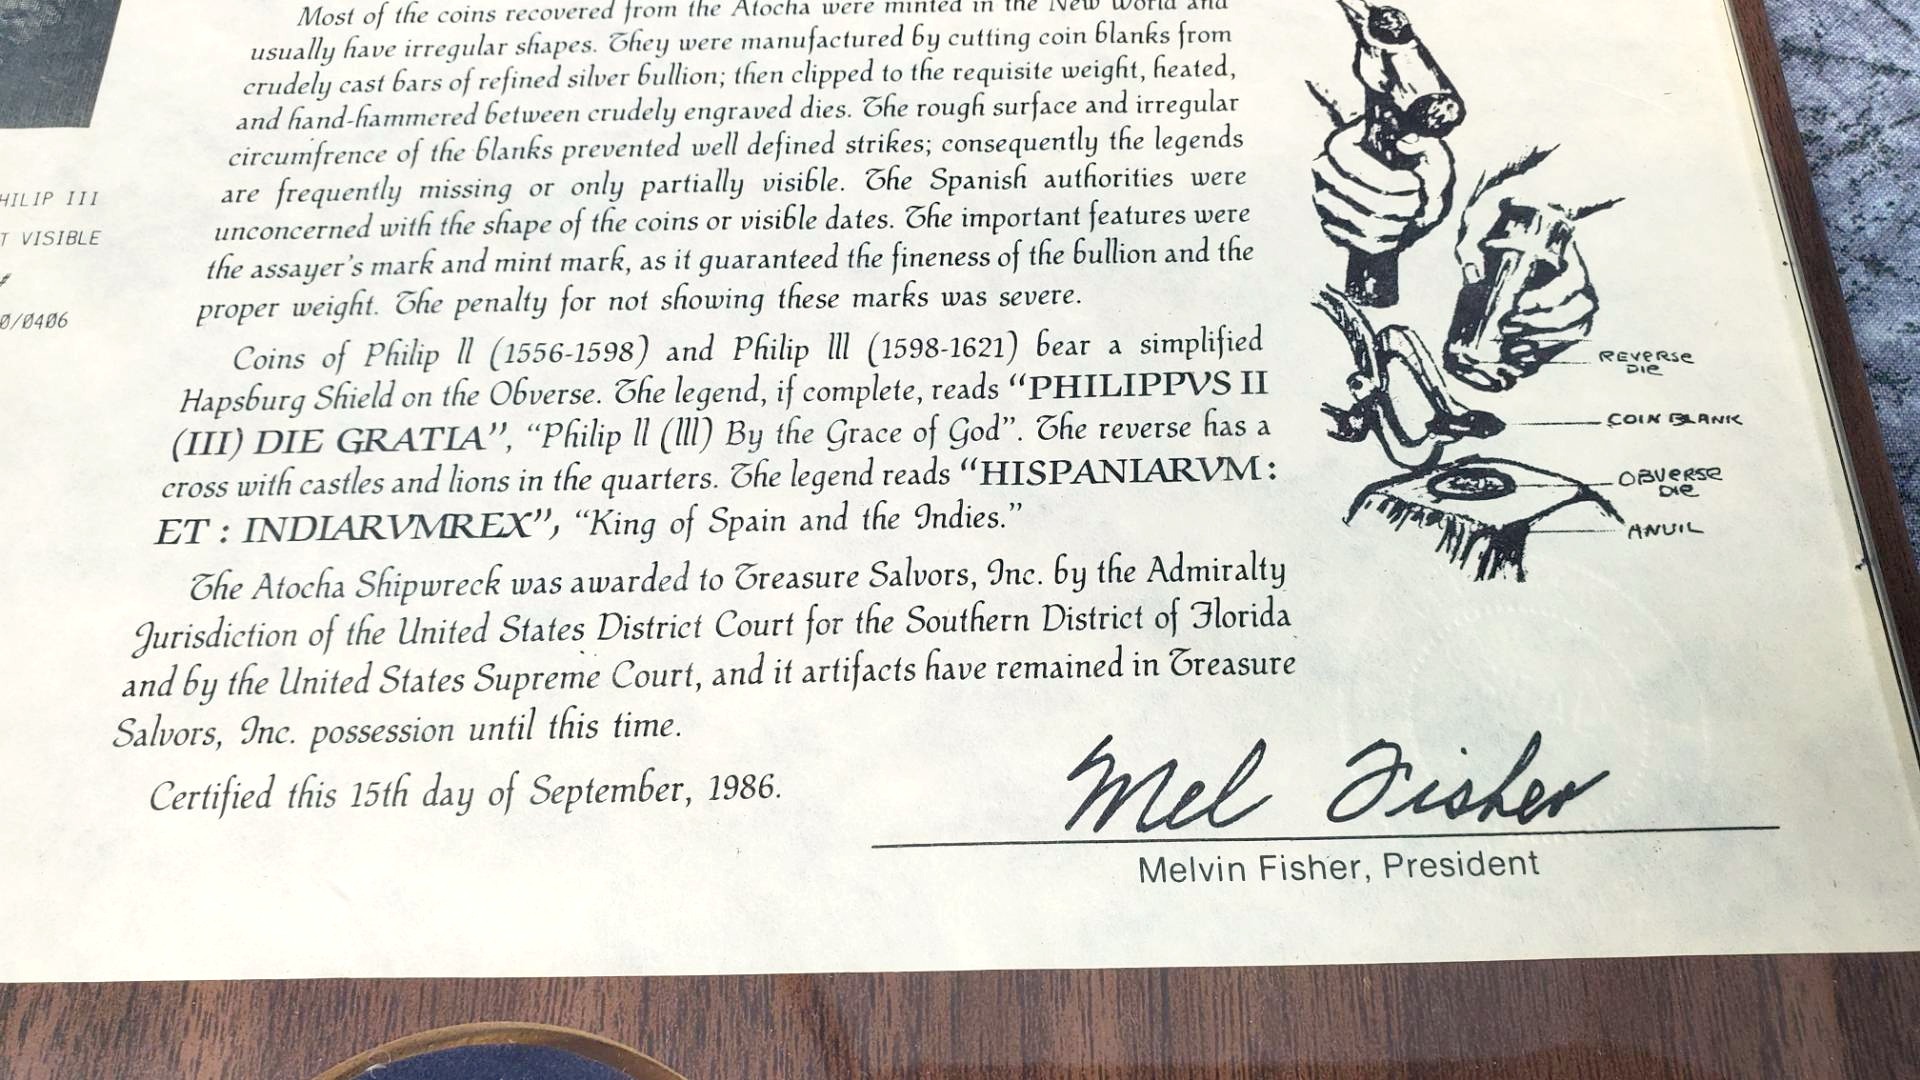 Most of the coins recovered from the Atocha were minted in the New World and
usually have irregular shapes. They were manufactured by cutting coin blanks from
crudely cast bars of refined silver bullion; then clipped to the requisite weight, heated,
and hand-hammered between crudely engraved dies. The rough surface and irregular
circumfrence of the blanks prevented well defined strikes; consequently the legends
are frequently missing or only partially visible. The Spanish authorities were
unconcerned with the shape of the coins or visible dates. The important features were
the assayer's mark and mint mark, as it guaranteed the fineness of the bullion and the
proper weight. The penalty for not showing these marks was severe.
Coins of Philip ll (1556-1598) and Philip lll (1598-1621) bear a simplified
Hapsburg Shield on the Obverse. The legend, if complete, reads “PHILIPPVS II
(III) DIE GRATIA”, “Philip ll (lll) By the Grace of God”. The reverse has a
cross with castles and lions in the quarters. The legend reads “HISPANIARVM :
ET : INDIARVMREX”, “King of Spain and the Indies.”
The Atocha Shipwreck was awarded to Treasure Salvors, Inc. by the Admiralty
Jurisdiction of the United States District Court for the Southern District of Florida
and by the United States Supreme Court, and it artifacts have remained in Treasure
Salvors, Inc. possession until this time.
Certified this 15th day of September, 1986.
Mel Fisher
Melvin Fisher, President
HILIP III
T VISIBLE
#
0/0406
REVERSE
DIE
COIN BLANK
OBVERSE
DIE
ANVIL